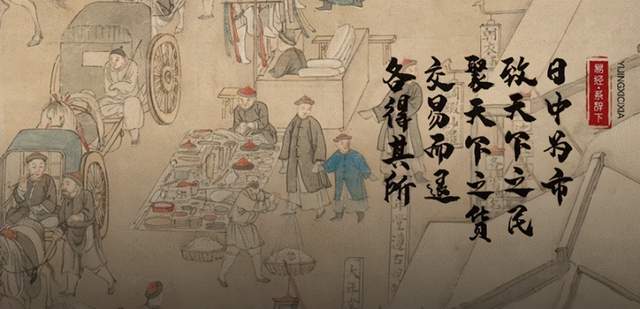 日中为市
致天下之民
聚天下之货
交易而退
各得其所
易经·系辞下
YIJINGXICIXIA